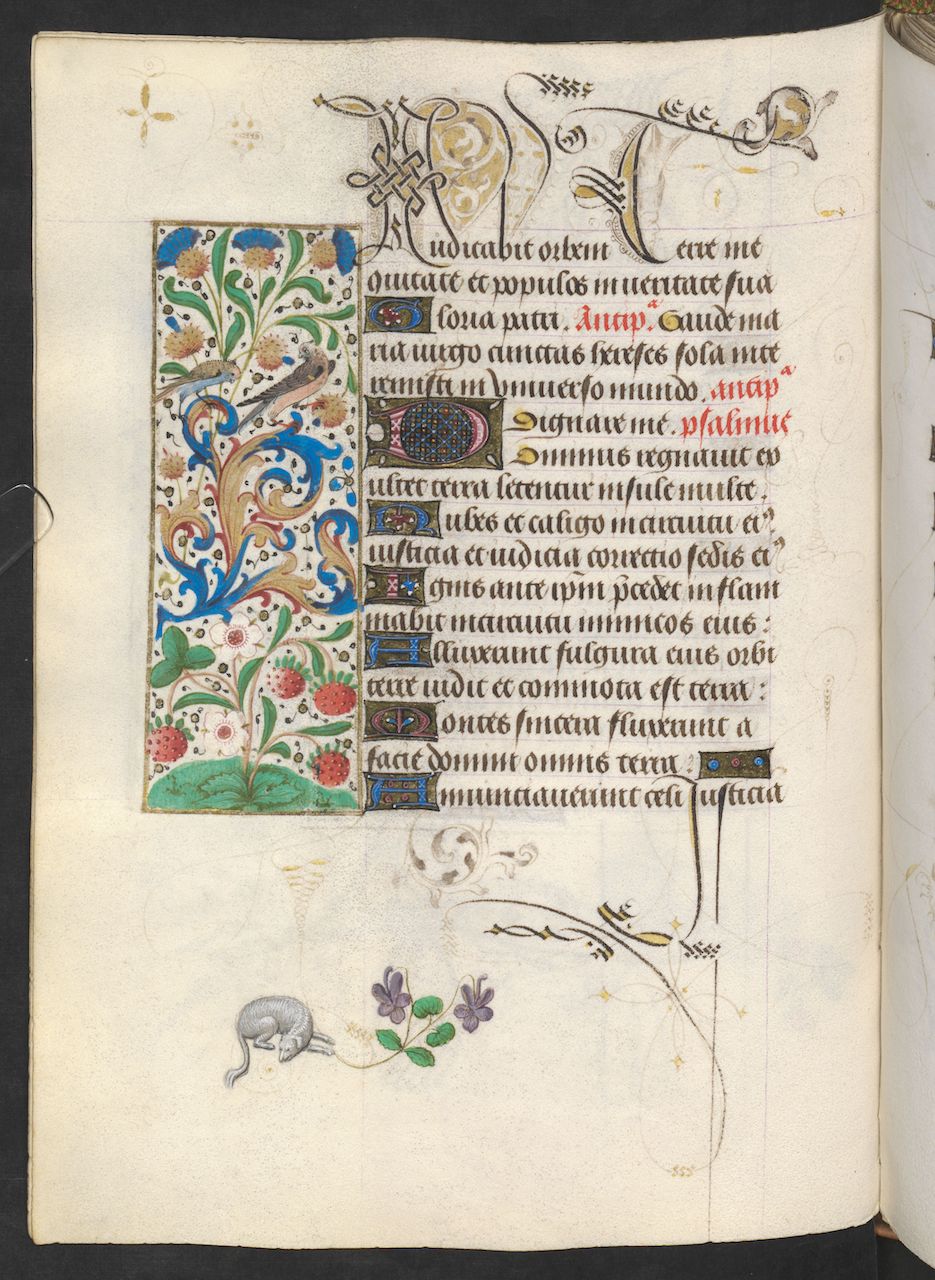 Iudicabit orbem terre in e
quitate et populos in veritate sua
Gloria patri. Antip.ª Gaude ma
ria virgo cunctas hereses sola inte
remisti in universo mundo. antipª
Dignare me. psalmus
Dominus regnavit ex
ultet terra letentur insule multe.
Nubes et caligo in circuitu eiꝰ
iusticia et iudicia correctio sedis eiꝰ
Ignis ante ip̄m p̄cedet inflam
mabit in circuitu inimicos eius:
Alluxerunt fulgura eius orbi
terre vidit et commota est terra:
Montes sicut cera fluxerunt a
facie domini omnis terra:
Annunciaverunt celi iusticia